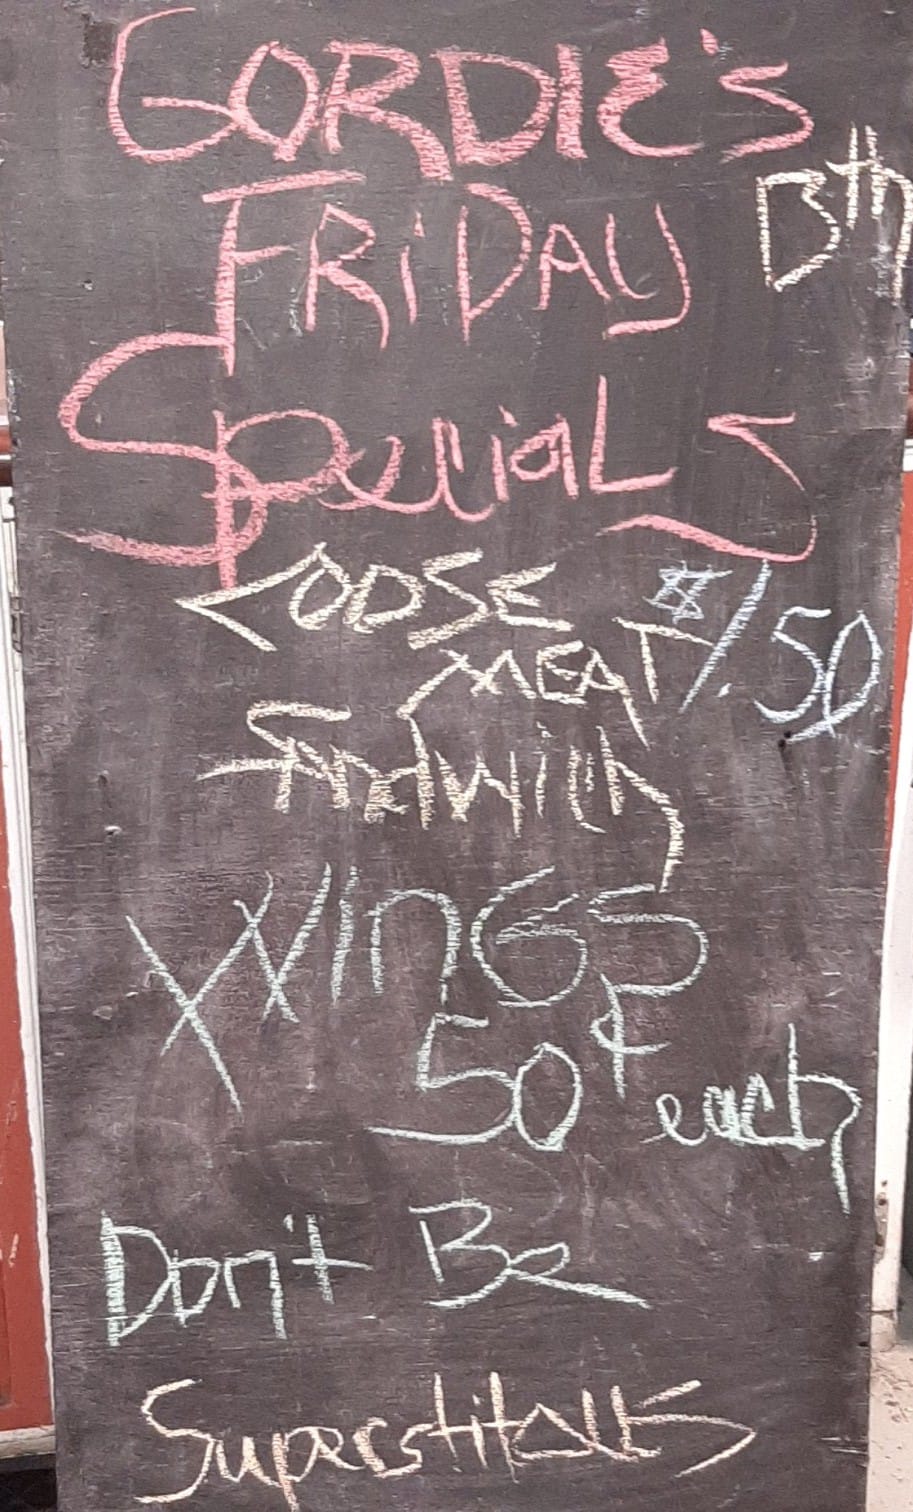 GORDIE's
FRiDAY 13th
SpecialS
LOOSE
MEAT $1.50
SANDWICH
WINGS
50¢ each
Don't Be
Superstitous